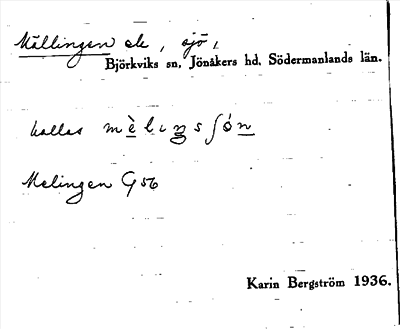 Mällingen el , sjö,
Björkviks sn. Jönåkers hd. Södermanlands län.
kallas
Melingen G 56
Karin Bergström 1936.